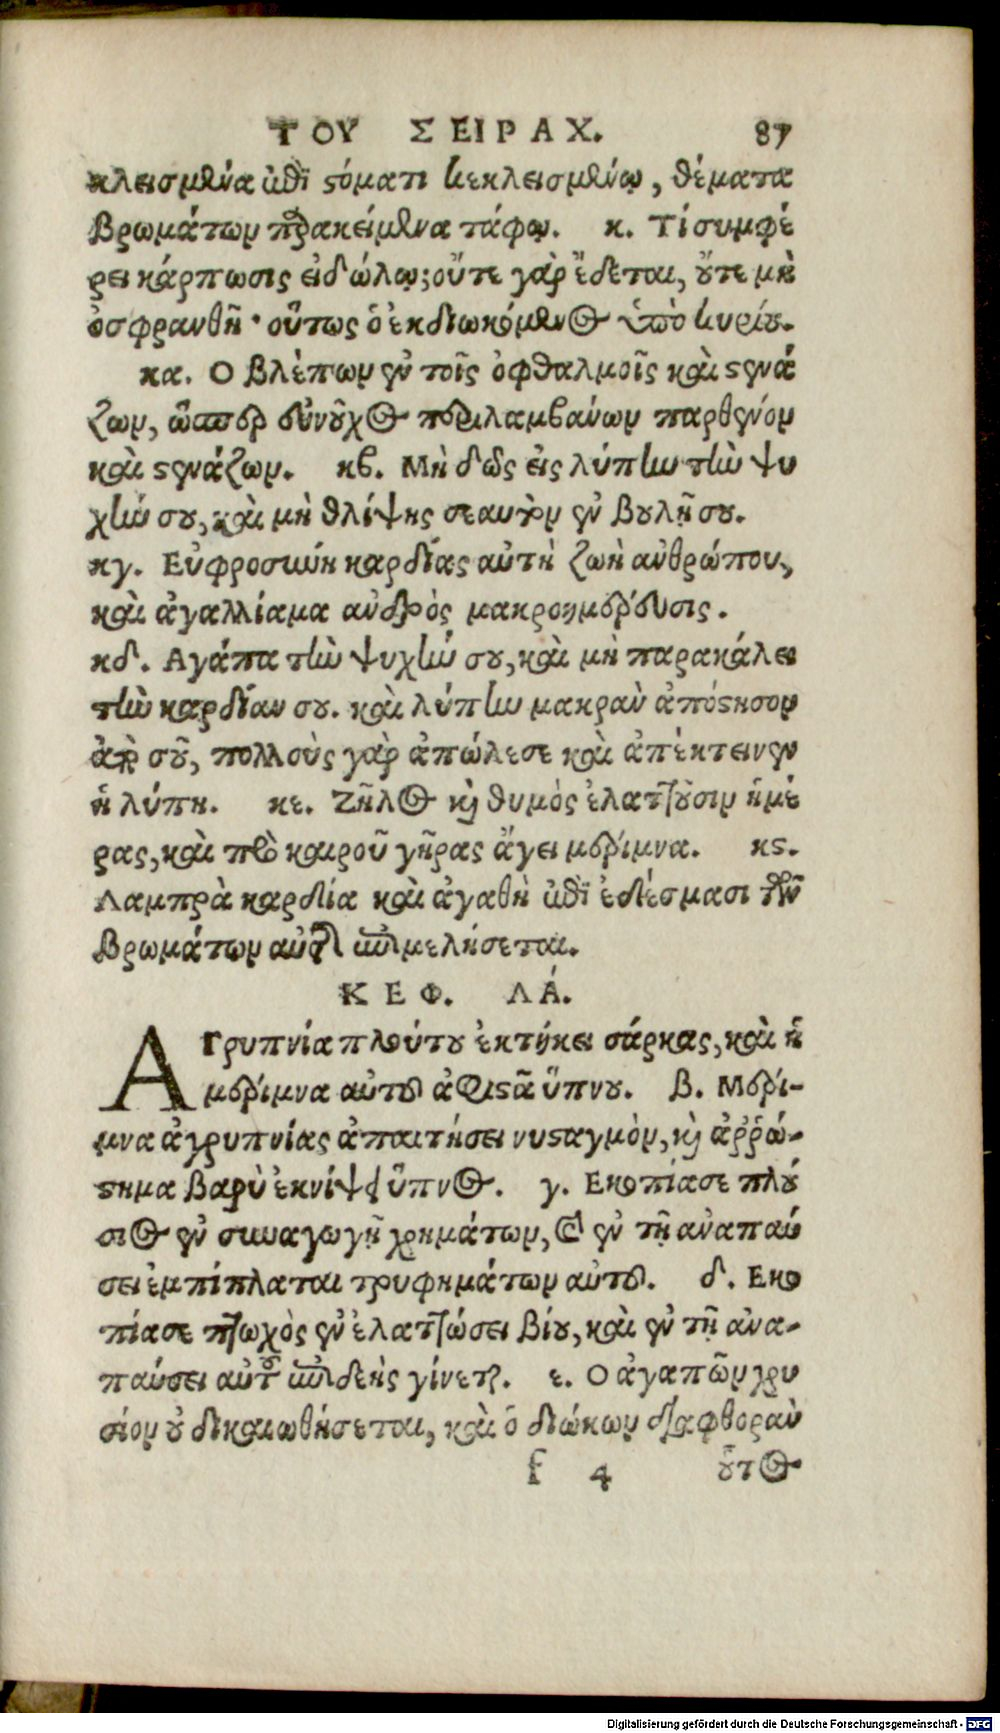 ΤΟΥ ΣΕΙΡΑΧ. 87
κλεισμένα ἐπὶ στόματι κεκλεισμένῳ, θέματα
βρωμάτων παρακείμενα τάφῳ. κ. Τί συμφέ
ρει κάρπωσις εἰδώλῳ; οὔτε γὰρ ἔδεται, οὔτε μὴ
ὀσφρανθῇ· οὕτως ὁ ἐκδιωκόμενος ὑπὸ κυρίου.
κα. Ο βλέπων ἐν τοῖς ὀφθαλμοῖς καὶ στενά
ζων, ὥσπερ εὐνοῦχος περιλαμβάνων παρθένον
καὶ στενάζων. κβ. Μὴ δῶς εἰς λύπην τὴν ψυ
χήν σου, καὶ μὴ θλίψης σεαυτὸν ἐν βουλῇ σου.
κγ. Εὐφροσύνη καρδίας αὐτὴ ζωὴ ἀνθρώπου,
καὶ ἀγαλλίαμα ἀνδρὸς μακροημέρευσις.
κδ. Αγάπα τὴν ψυχήν σου, καὶ μὴ παρακάλει
τὴν καρδίαν σου. καὶ λύπην μακρὰν ἀπόστησον
ἀπὸ σοῦ, πολλοὺς γὰρ ἀπώλεσε καὶ ἀπέκτεινεν
ἡ λύπη. κε. Ζῆλος καὶ θυμὸς ἐλαττοῦσιν ἡμέ
ρας, καὶ πρὸ καιροῦ γῆρας ἄγει μέριμνα. κς.
Λαμπρὰ καρδία καὶ ἀγαθὴ ἐπὶ ἐδέσμασι τῶν
βρωμάτων αὐτῆς ἐπιμελήσεται.
ΚΕΦ. ΛΑ.
Αγρυπνία πλούτου ἐκτήκει σάρκας, καὶ ἡ
μέριμνα αὐτοῦ ἀφιστᾶ ὕπνου. β. Μέρι-
μνα ἀγρυπνίας ἀπαιτήσει νυσταγμὸν, καὶ ἀῤῥώ-
στημα βαρὺ ἐκνίψει ὕπνος. γ. Εκοπίασε πλού
σιος ἐν συναγωγῇ χρημάτων, καὶ ἐν τῇ ἀναπαύ
σει ἐμπίπλαται τρυφημάτων αὐτοῦ. δ. Εκο
πίασε πτωχὸς ἐν ἐλαττώσει βίου, καὶ ἐν τῇ ἀνα-
παύσει αὐτοῦ ἐπιδεὴς γίνεται. ε. Ο ἀγαπῶν χρυ
σίον οὐ δικαιωθήσεται, καὶ ὁ διώκων διαφθορὰν
f 4 οὗτος